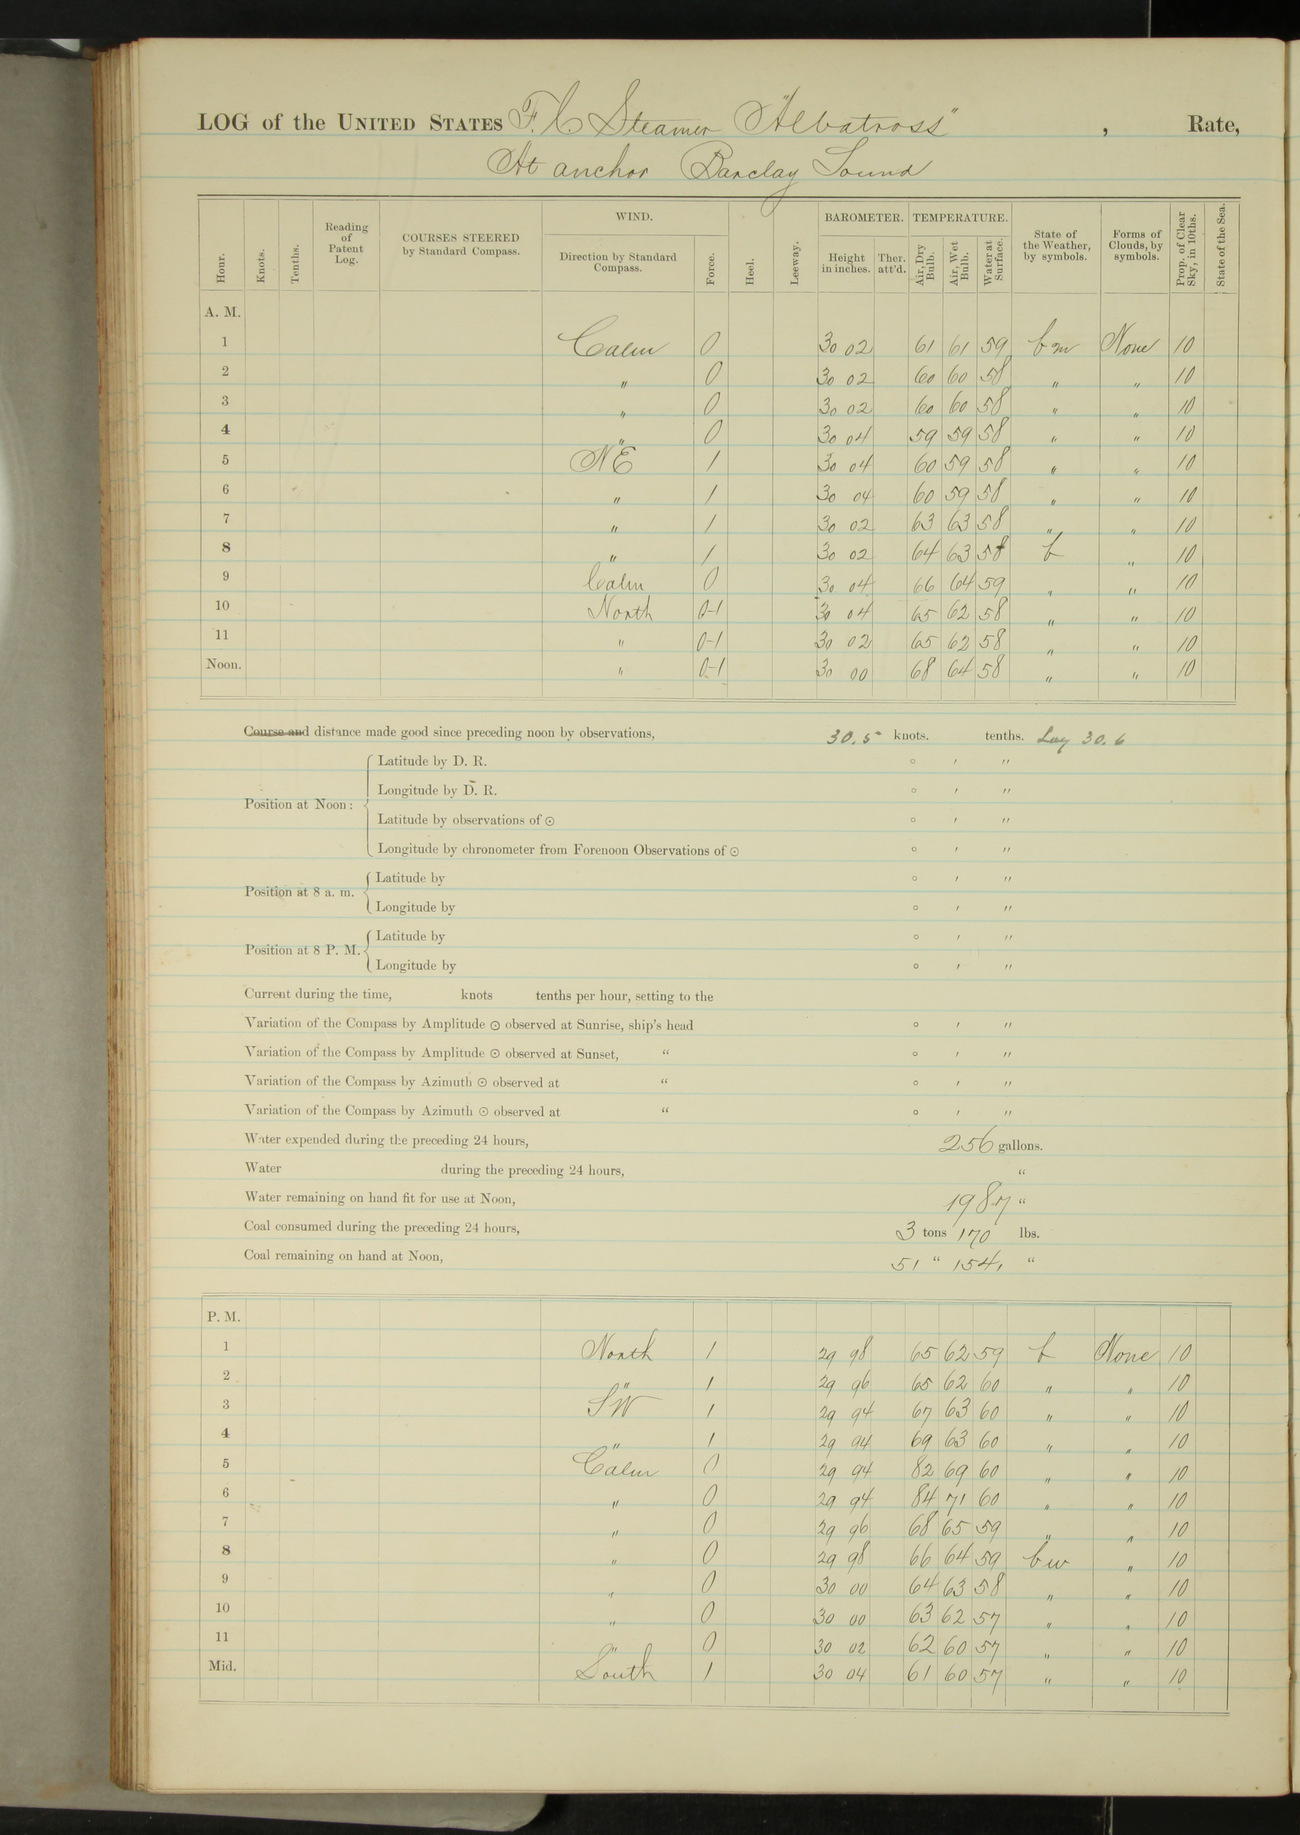 LOG of the UNITED STATES F. C. Steamer "Albatross", Rate,
At anchor Barclay Sound
Hour. Knots. Tenths. Reading of Patent Log. COURSES STEERED by Standard Compass. WIND. Direction by Standard Compass. Force. Heel. Leeway. BAROMETER. Height in inches. Ther. att'd. TEMPERATURE. Air, Dry Bulb. Air, Wet Bulb. Water at Surface. State of the Weather, by symbols. Forms of Clouds, by symbols. Prop. of Clear Sky, in 10ths. State of the Sea.
A. M.
1 Calm 0 30 02 61 61 59 bm None 10
2 " 0 30 02 60 60 58 " " 10
3 " 0 30 02 60 60 58 " " 10
4 " 0 30 04 59 59 58 " " 10
5 NE 1 30 04 60 59 58 " " 10
6 " 1 30 04 60 59 58 " " 10
7 " 1 30 02 63 63 58 " " 10
8 " 1 30 02 64 63 58 b " 10
9 Calm 0 30 04 66 64 59 " " 10
10 North 0-1 30 04 65 62 58 " " 10
11 " 0-1 30 02 65 62 58 " " 10
Noon. " 0-1 30 00 68 64 58 " " 10
Course and distance made good since preceding noon by observations, 30.5 knots. tenths. Log 30.6
Position at Noon:
Latitude by D. R. ° ′ ″
Longitude by D. R. ° ′ ″
Latitude by observations of ⊙ ° ′ ″
Longitude by chronometer from Forenoon Observations of ⊙ ° ′ ″
Position at 8 a. m.
Latitude by ° ′ ″
Longitude by ° ′ ″
Position at 8 P. M.
Latitude by ° ′ ″
Longitude by ° ′ ″
Current during the time, knots tenths per hour, setting to the
Variation of the Compass by Amplitude ⊙ observed at Sunrise, ship's head ° ′ ″
Variation of the Compass by Amplitude ⊙ observed at Sunset, " ° ′ ″
Variation of the Compass by Azimuth ⊙ observed at " ° ′ ″
Variation of the Compass by Azimuth ⊙ observed at " ° ′ ″
Water expended during the preceding 24 hours, 256 gallons.
Water during the preceding 24 hours, "
Water remaining on hand fit for use at Noon, 1987 "
Coal consumed during the preceding 24 hours, 3 tons 170 lbs.
Coal remaining on hand at Noon, 51 " 1541 "
P. M.
1 North 1 29 98 65 62 59 b None 10
2 " 1 29 96 65 62 60 " " 10
3 SW 1 29 94 67 63 60 " " 10
4 " 1 29 94 69 63 60 " " 10
5 Calm 0 29 94 82 69 60 " " 10
6 " 0 29 94 84 71 60 " " 10
7 " 0 29 96 68 65 59 " " 10
8 " 0 29 98 66 64 59 bw " 10
9 " 0 30 00 64 63 58 " " 10
10 " 0 30 00 63 62 57 " " 10
11 " 0 30 02 62 60 57 " " 10
Mid. South 1 30 04 61 60 57 " " 10